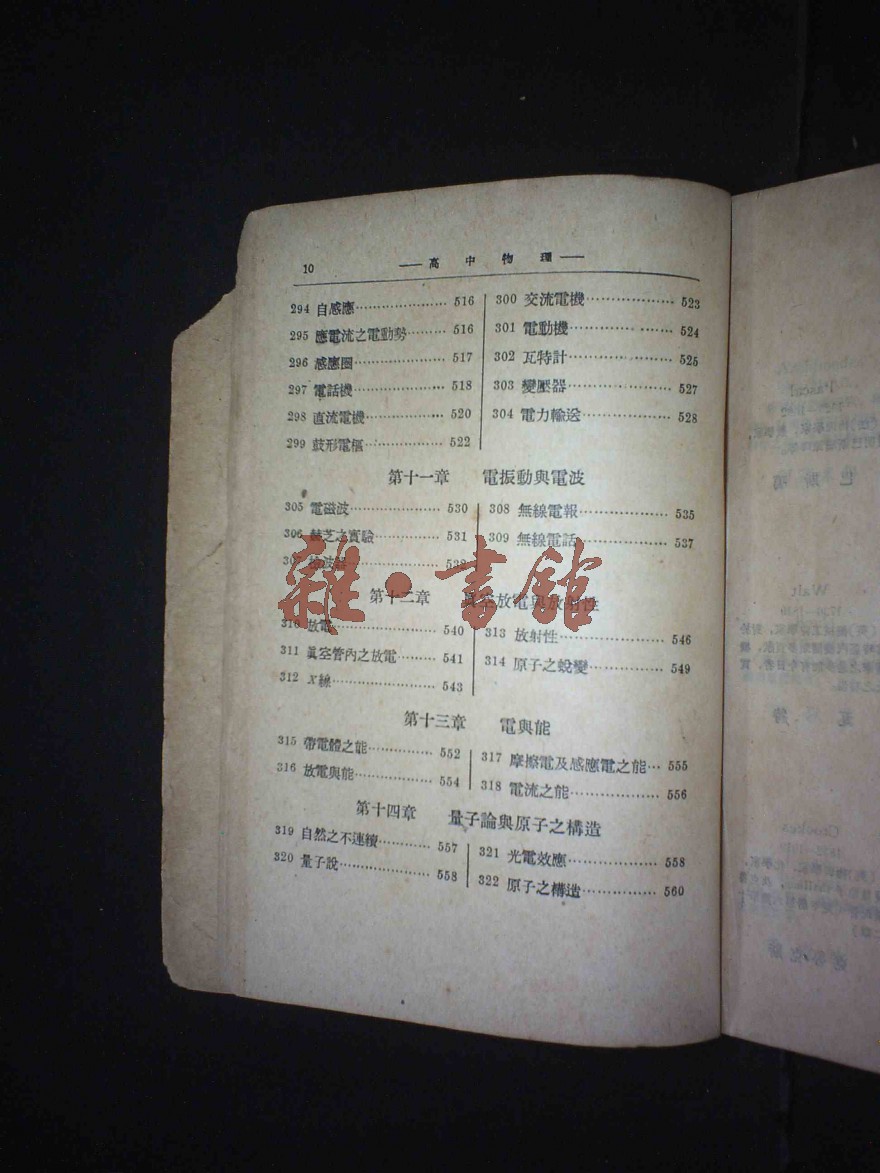 10
——高 中 物 理——
294 自感應…………………… 516
295 應電流之電動勢……… 516
296 感應圈…………………… 517
297 電話機…………………… 518
298 直流電機………………… 520
299 鼓形電樞………………… 522
300 交流電機………………… 523
301 電動機…………………… 524
302 瓦特計…………………… 525
303 變壓器…………………… 527
304 電力輸送………………… 528
第十一章 電振動與電波
305 電磁波…………………… 530
306 赫芝之實驗……………… 531
307 檢波器
308 無線電報………………… 535
309 無線電話………………… 537
第十二章 眞空放電與放射性
310 放電……………………… 540
311 眞空管內之放電……… 541
312 X線……………………… 543
313 放射性…………………… 546
314 原子之蛻變……………… 549
第十三章 電與能
315 帶電體之能……………… 552
316 放電與能………………… 554
317 摩擦電及感應電之能… 555
318 電流之能………………… 556
第十四章 量子論與原子之構造
319 自然之不連續………… 557
320 量子說…………………… 558
321 光電效應………………… 558
322 原子之構造……………… 560
雜·書館